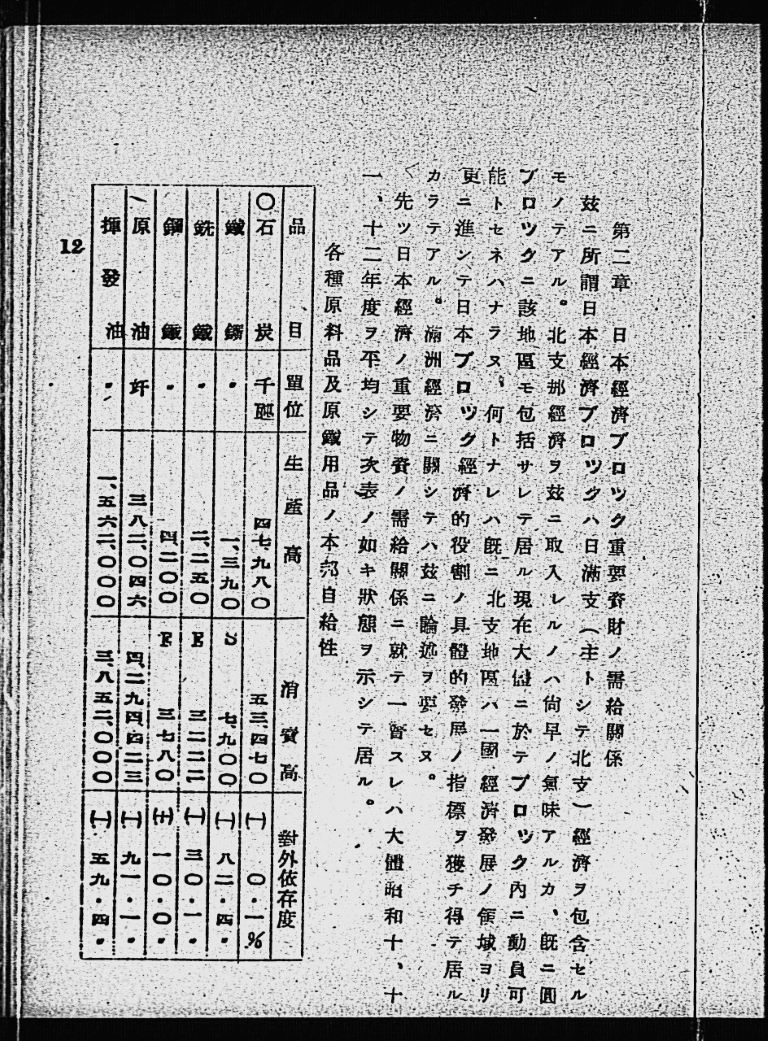 第二章　日本經濟ブロツク重要資財ノ需給關係
玆ニ所謂日本經濟ブロツクハ日滿支（主トシテ北支）經濟ヲ包含セル
モノテアル。北支那經濟ヲ玆ニ取入レルノハ尙早ノ氣味アルカ、旣ニ圓
ブロツクニ該地區モ包括サレテ居ル現在大體ニ於テブロツク內ニ動員可
能トセネハナラヌ、何トナレハ旣ニ北支地區ハ一國經濟發展ノ領域ヨリ
更ニ進ンテ日本ブロツク經濟的役割ノ具體的發展ノ指標ヲ獲チ得テ居ル
カラテアル。滿洲經濟ニ關シテハ玆ニ論述ヲ要セヌ。
先ツ日本經濟ノ重要物資ノ需給關係ニ就テ一瞥スレハ大體昭和十、十
一、十二年度ヲ平均シテ次表ノ如キ狀態ヲ示シテ居ル。
各種原料品及原鑛用品ノ本邦自給性
品目　單位　生產高　消費高　對外依存度
〇石炭　千瓲　四七、九八〇　五三、四七〇　(一)　〇・一%
鐵鑛　〃　一、三九〇　S　七、九〇〇　(一)　八二・四〃
銑鐵　〃　二、二五〇　E　三二二二　(一)　三〇・一〃
鋼鐵　〃　四、二〇〇　E　三七八〇　(十)　一〇・〇〃
原油　竏　三八二、〇四六　四、二九四、四二三　(一)　九一・一〃
揮發油　〃　一、五六二、〇〇〇　三、八五二、〇〇〇　(一)　五九・四〃
12